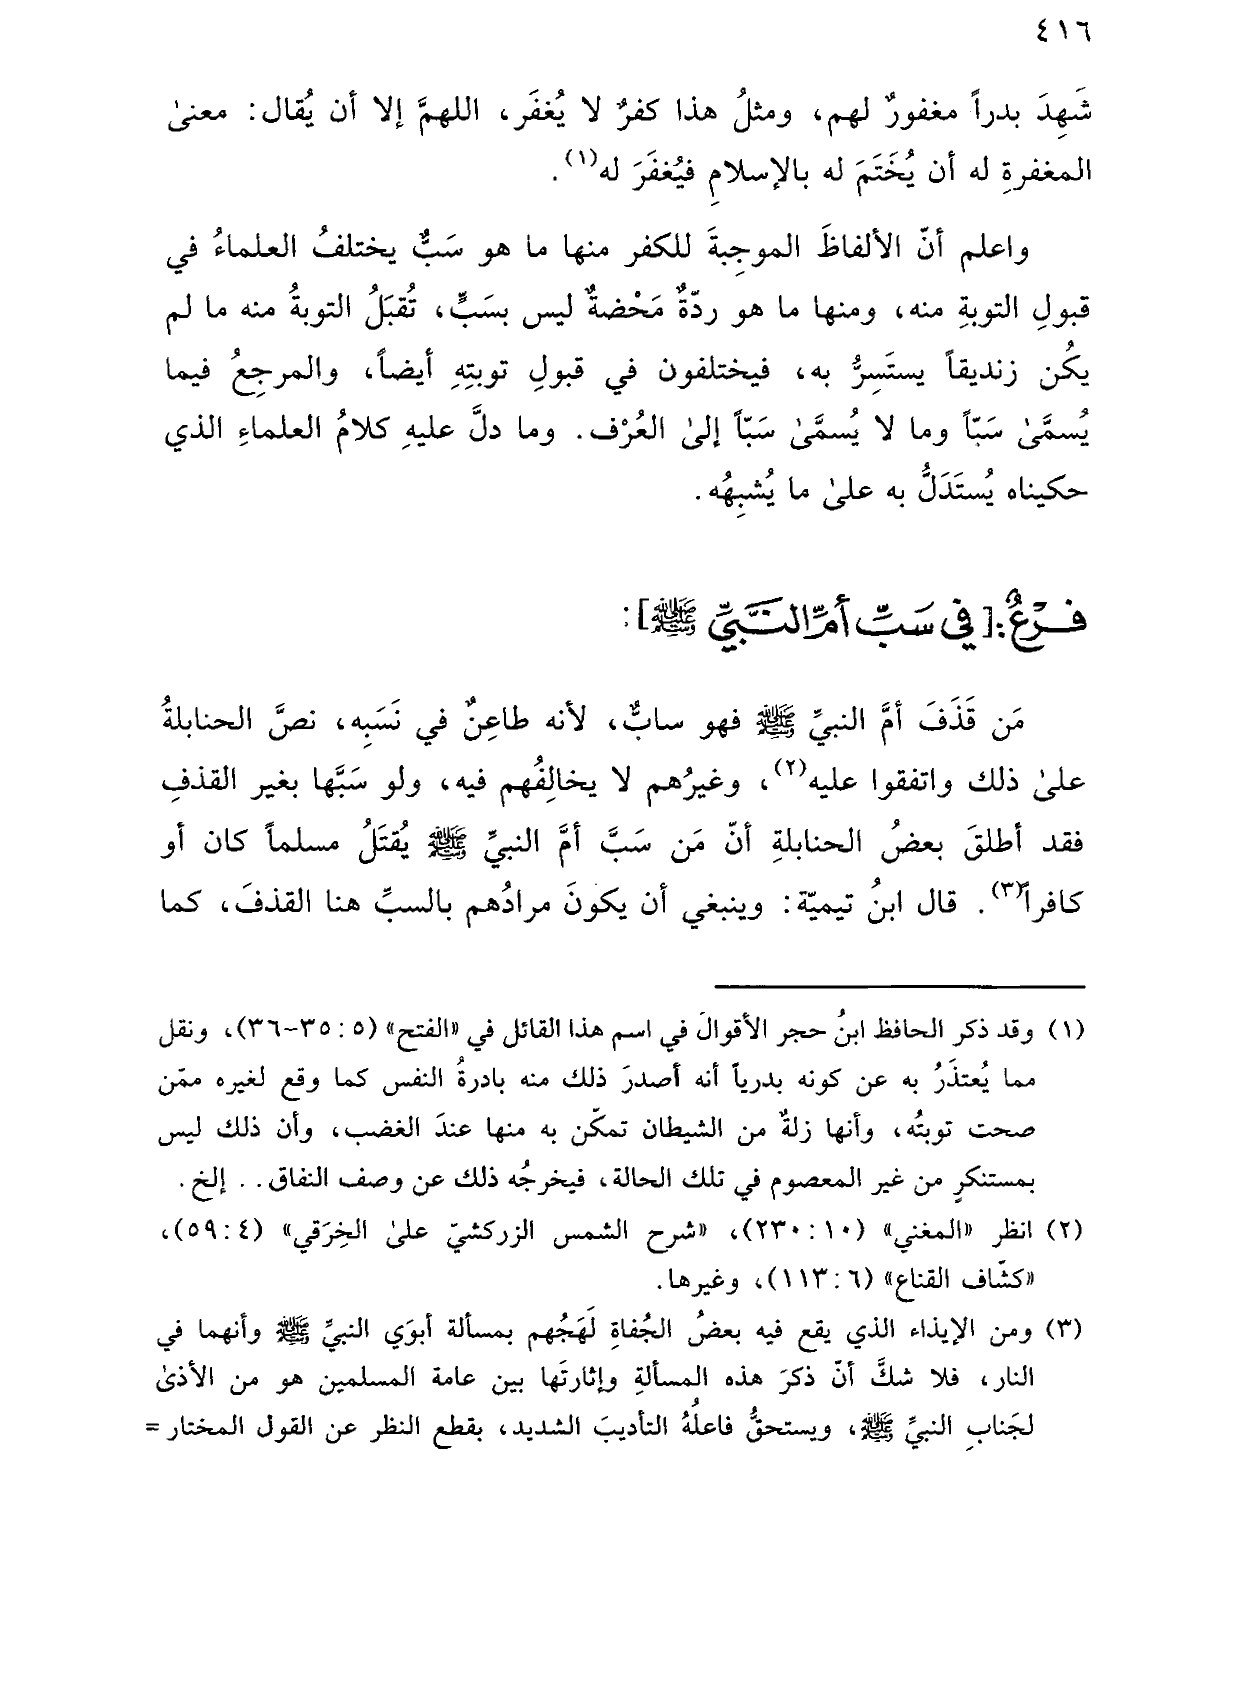 ٤١٦
شَهِدَ بدراً مغفورٌ لهم، ومثلُ هذا كفرٌ لا يُغفَر، اللهمَّ إلا أن يُقال: معنىٰ
المغفرةِ له أن يُختَمَ له بالإسلامِ فيُغفَرَ له(١).
واعلم أنّ الألفاظَ الموجِبةَ للكفر منها ما هو سَبٌّ يختلفُ العلماءُ في
قبولِ التوبةِ منه، ومنها ما هو ردّةٌ مَحْضةٌ ليس بسَبٍّ، تُقبَلُ التوبةُ منه ما لم
يكُن زنديقاً يستَسِرُّ به، فيختلفون في قبولِ توبتِهِ أيضاً، والمرجِعُ فيما
يُسمَّىٰ سَبّاً وما لا يُسمَّىٰ سَبّاً إلىٰ العُرْف. وما دلَّ عليهِ كلامُ العلماءِ الذي
حكيناه يُستَدَلُّ به علىٰ ما يُشبِهُه.
فَرْعٌ: [في سَبِّ أمِّ النَّبيِّ ﷺ]:
مَن قَذَفَ أمَّ النبيِّ ﷺ فهو سابٌّ، لأنه طاعِنٌ في نَسَبِه، نصَّ الحنابلةُ
علىٰ ذلك واتفقوا عليه(٢)، وغيرُهم لا يخالِفُهم فيه، ولو سَبَّها بغير القذفِ
فقد أطلقَ بعضُ الحنابلةِ أنّ مَن سَبَّ أمَّ النبيِّ ﷺ يُقتَلُ مسلماً كان أو
كافراً(٣). قال ابنُ تيميّة: وينبغي أن يكونَ مرادُهم بالسبِّ هنا القذفَ، كما
(١) وقد ذكر الحافظ ابنُ حجر الأقوالَ في اسم هذا القائل في «الفتح» (٥: ٣٥-٣٦)، ونقل
مما يُعتذَرُ به عن كونه بدرياً أنه أصدرَ ذلك منه بادرةُ النفس كما وقع لغيره ممّن
صحت توبتُه، وأنها زلةٌ من الشيطان تمكّن به منها عندَ الغضب، وأن ذلك ليس
بمستنكرٍ من غير المعصوم في تلك الحالة، فيخرجُه ذلك عن وصف النفاق.. إلخ.
(٢) انظر «المغني» (١٠: ٢٣٠)، «شرح الشمس الزركشيّ علىٰ الخِرَقي» (٤: ٥٩)،
«كشّاف القناع» (٦: ١١٣)، وغيرها.
(٣) ومن الإيذاء الذي يقع فيه بعضُ الجُفاةِ لَهَجُهم بمسألة أبوَي النبيِّ ﷺ وأنهما في
النار، فلا شكَّ أنّ ذكرَ هذه المسألةِ وإثارتَها بين عامة المسلمين هو من الأذىٰ
لجَنابِ النبيِّ ﷺ، ويستحقُّ فاعلُهُ التأديبَ الشديد، بقطع النظر عن القول المختار =